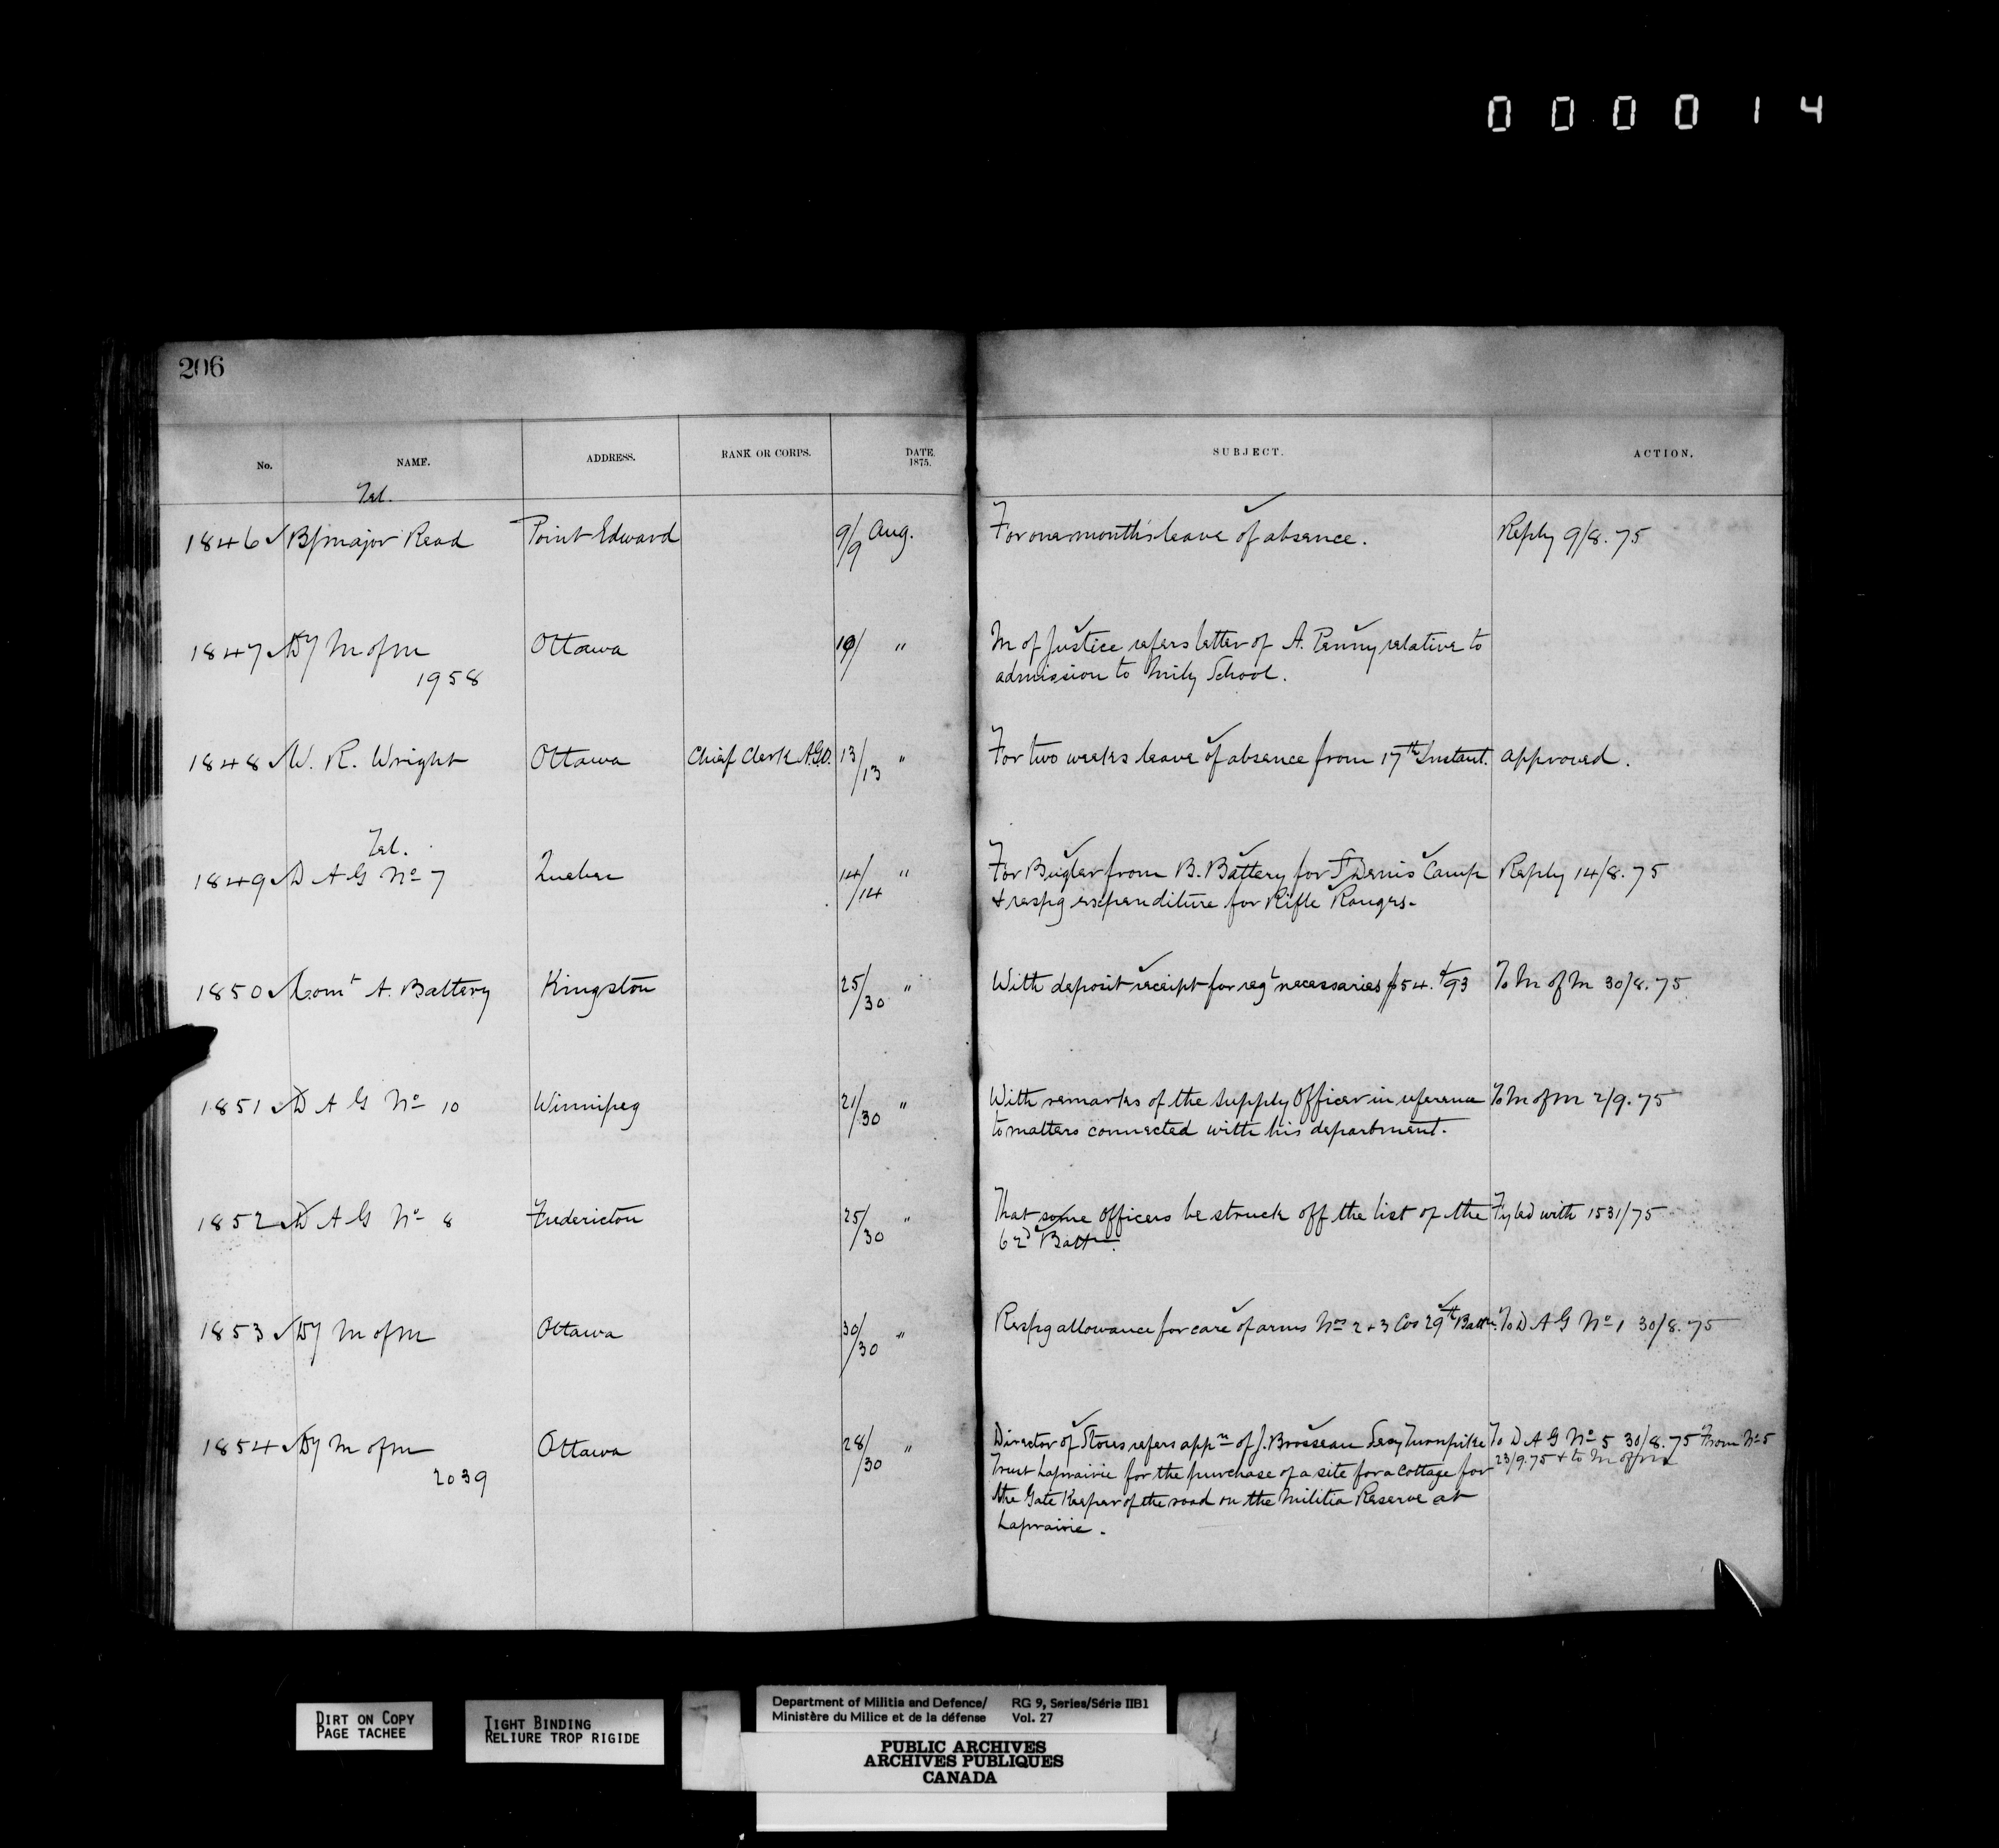 000014
206
No. NAME. ADDRESS. RANK OR CORPS. DATE. 1875. SUBJECT. ACTION.
Tel.
1846 B/major Read Point Edward 9/9 Aug. For one month's leave of absence. Reply 9/8.75
1847 Dy M of M Ottawa 10/ " M of Justice refers letter of A. Penny relative to
1958 admission to Mily School.
1848 W. R. Wright Ottawa Chief Clerk A.G.O. 13/13 " For two weeks leave of absence from 17th Instant. approved.
Tel.
1849 D A G No 7 Quebec 14/14 " For Bugler from B. Battery for St Denis Camp Reply 14/8.75
& respg expenditure for Rifle Ranges.
1850 Comt A. Battery Kingston 25/30 " With deposit receipt for regl necessaries $54.93 To M of M 30/8.75
1851 D A G No 10 Winnipeg 21/30 " With remarks of the Supply Officer in reference To M of M 2/9.75
to matters connected with his department.
1852 D A G No 8 Fredericton 25/30 " That some Officers be struck off the list of the Fyled with 1531/75
62d Battn.
1853 Dy M of M Ottawa 30/30 " Respg allowance for care of arms Nos 2 & 3 Cos 29th Battn. To D A G No 1 30/8.75
1854 Dy M of M Ottawa 28/30 " Director of Stores refers appn of J. Brosseau Secy Turnpike To D A G No 5 30/8.75 From No 5
2039 Trust Laprairie for the purchase of a site for a Cottage for 23/9.75 & to M of M
the Gate Keeper of the road on the Militia Reserve at
Laprairie.
DIRT ON COPY
PAGE TACHEE
TIGHT BINDING
RELIURE TROP RIGIDE
Department of Militia and Defence/ RG 9, Series/Série IIB1
Ministère du Milice et de la défense Vol. 27
PUBLIC ARCHIVES
ARCHIVES PUBLIQUES
CANADA